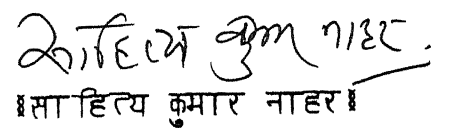 साहित्य कुमार नाहर.
[साहित्य कुमार नाहर]